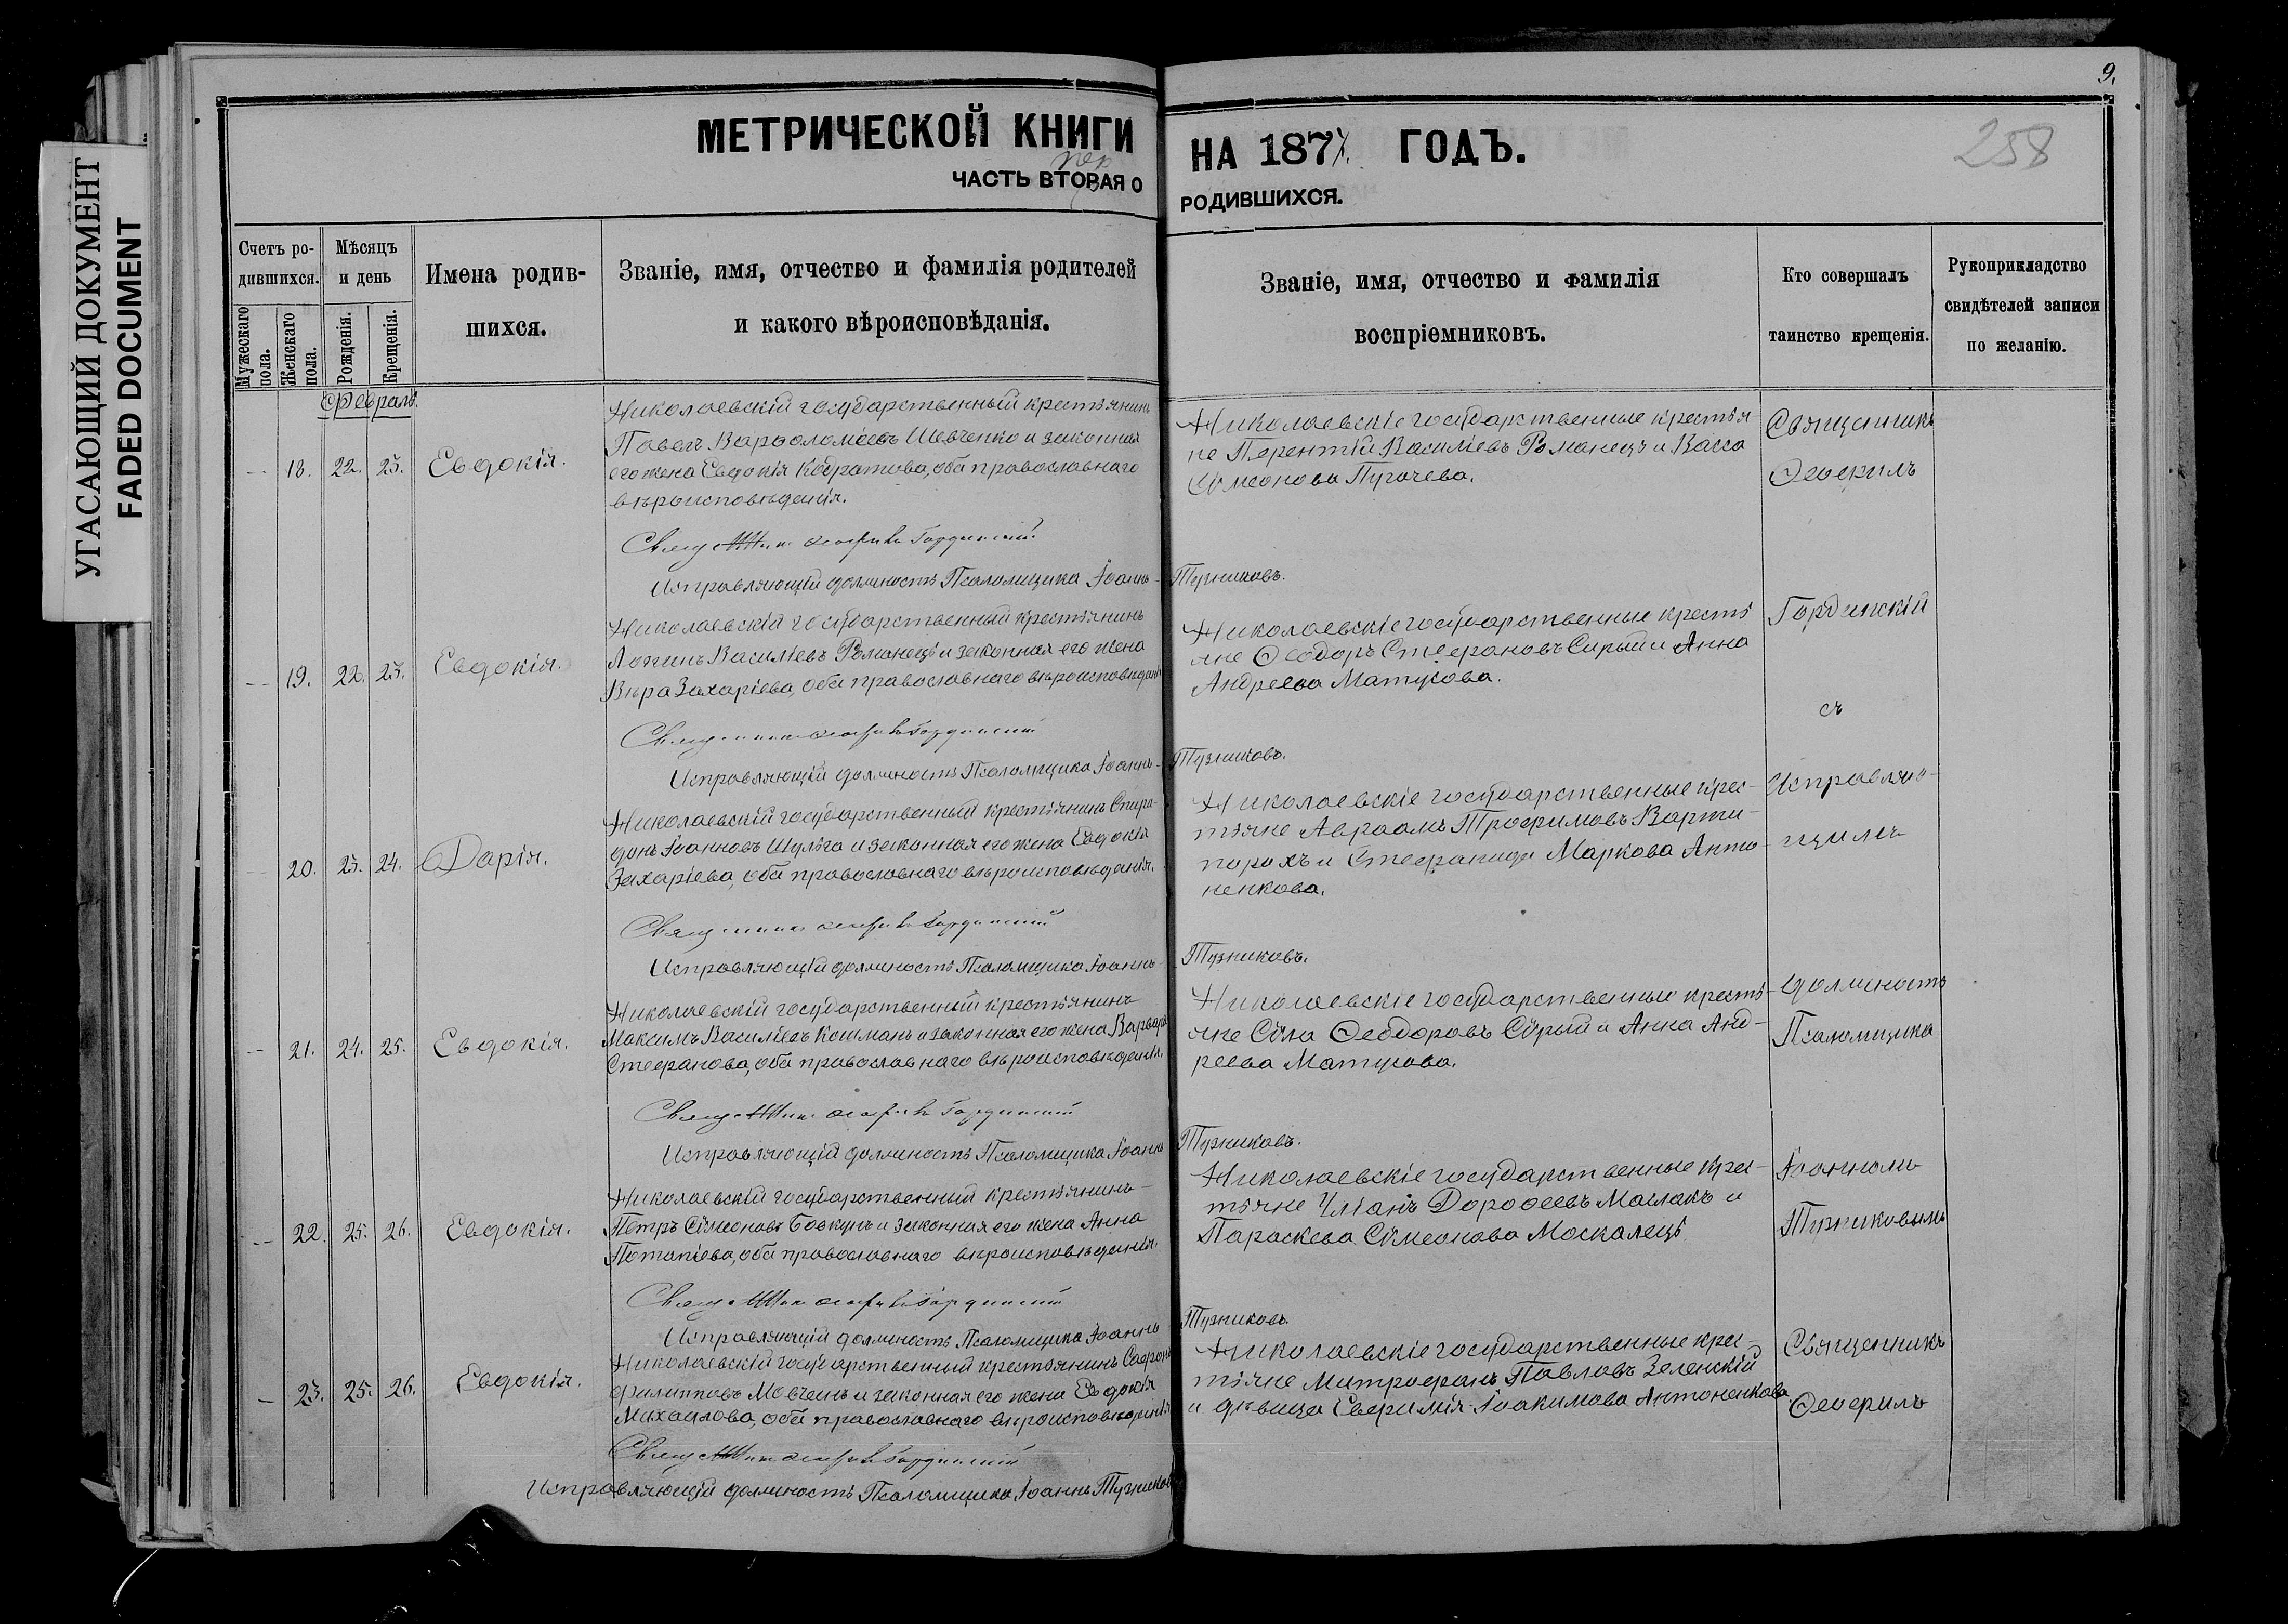 УГАСАЮЩИЙ ДОКУМЕНТ
FADED DOCUMENT
9.
258
МЕТРИЧЕСКОЙ КНИГИ НА 187 ГОДЪ.
пер
ЧАСТЬ ВТОРАЯ О РОДИВШИХСЯ.
Счетъ ро-
дившихся.
Мужескаго пола.
Женскаго пола.
Мѣсяцъ
и день
Рожденія.
Крещенія.
Имена родив-
шихся.
Званіе, имя, отчество и фамилія родителей
и какого вѣроисповѣданія.
Званіе, имя, отчество и фамилія
воспріемниковъ.
Кто совершалъ
таинство крещенія.
Рукоприкладство
свидѣтелей записи
по желанію.
Февраль.
18. 22. 23. Евдокія.
Николаевскій государственный крестьянинъ
Павелъ Варѳоломеевъ Шевченко и законная
его жена Евдокія Кодратова, оба православнаго
вѣроисповѣданія.
Николаевскіе государственные крестья
не Терентій Василіевъ Романецъ и Васса
Сѵмеонова Пугачева.
Священникъ
Ѳеофилъ
Священникъ Ѳеофилъ Гординскій
Исправляющій должность Псаломщика Іоаннъ Тузниковъ.
19. 22. 23. Евдокія.
Николаевскій государственный крестьянинъ
Логинъ Василіевъ Романецъ и законная его жена
Вѣра Захаріева, оба православнаго вѣроисповѣданія
Николаевскіе государственные кресть
яне Ѳеодоръ Стефановъ Сирый и Анна
Андреева Матусова.
Гординскій
съ
Священникъ Ѳеофилъ Гординскій
Исправляющій должность Псаломщика Іоаннъ Тузниковъ.
20. 23. 24. Дарія.
Николаевскій государственный крестьянинъ Спири-
донъ Іоанновъ Шульга и законная его жена Евдокія
Захаріева, оба православнаго вѣроисповѣданія.
Николаевскіе государственные крес-
тьяне Авраамъ Трофимовъ Варти-
порохъ и Стефанида Маркова Анто-
ненкова.
Исправляю-
щимъ
Священникъ Ѳеофилъ Гординскій
Исправляющій должность Псаломщика Іоаннъ Тузниковъ.
21. 24. 25. Евдокія.
Николаевскій государственный крестьянинъ
Максимъ Василіевъ Кошманъ и законная его жена Варвара
Стефанова, оба православнаго вѣроисповѣданія.
Николаевскіе государственные кресть-
яне Сѵла Ѳеодоровъ Сѣрый и Анна Анд-
реева Матусова.
должность
Псаломщика
Священникъ Ѳеофилъ Гординскій
Исправляющій должность Псаломщика Іоаннъ Тузниковъ.
22. 25. 26. Евдокія.
Николаевскій государственный крестьянинъ
Петръ Сѵмеоновъ Бовкунъ и законная его жена Анна
Потапіева, оба православнаго вѣроисповѣданія.
Николаевскіе государственные крес-
тьяне Уліанъ Дороѳеевъ Маслакъ и
Параскева Сѵмеонова Москалецъ
Іоанномъ
Тузниковымъ
Священникъ Ѳеофилъ Гординскій
Исправляющій должность Псаломщика Іоаннъ Тузниковъ.
23. 25. 26. Евдокія.
Николаевскій государственный крестьянинъ Сафронъ
Филипповъ Мовчанъ и законная его жена Евдокія
Михаилова, оба православнаго вѣроисповѣданія
Николаевскіе государственные крес-
тьяне Митрофанъ Павловъ Зеленскій
и дѣвица Евфимія Іоакимова Антоненкова.
Священникъ
Ѳеофилъ
Священникъ Ѳеофилъ Гординскій
Исправляющій должность Псаломщика Іоаннъ Тузниковъ